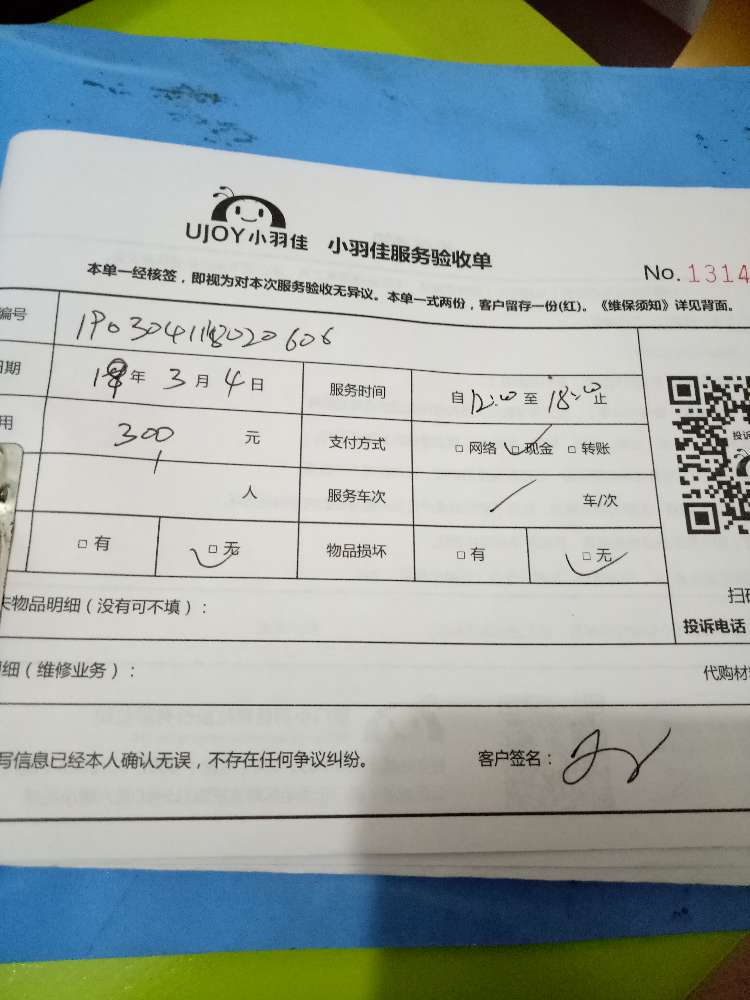 UJOY小羽佳 小羽佳服务验收单
No. 1314
本单一经核签，即视为对本次服务验收无异议。本单一式两份，客户留存一份(红)。《维保须知》详见背面。
编号
日期 年 3 月 4 日 服务时间 自 12:00 至 18:00 止
用 300 元 支付方式 □ 网络 □ 现金 □ 转账
人 服务车次 车/次
□ 有 □ 无 物品损坏 □ 有 □ 无
投诉
扫码
投诉电话
失物品明细（没有可不填）：
明细（维修业务）： 代购材
写信息已经本人确认无误，不存在任何争议纠纷。 客户签名：